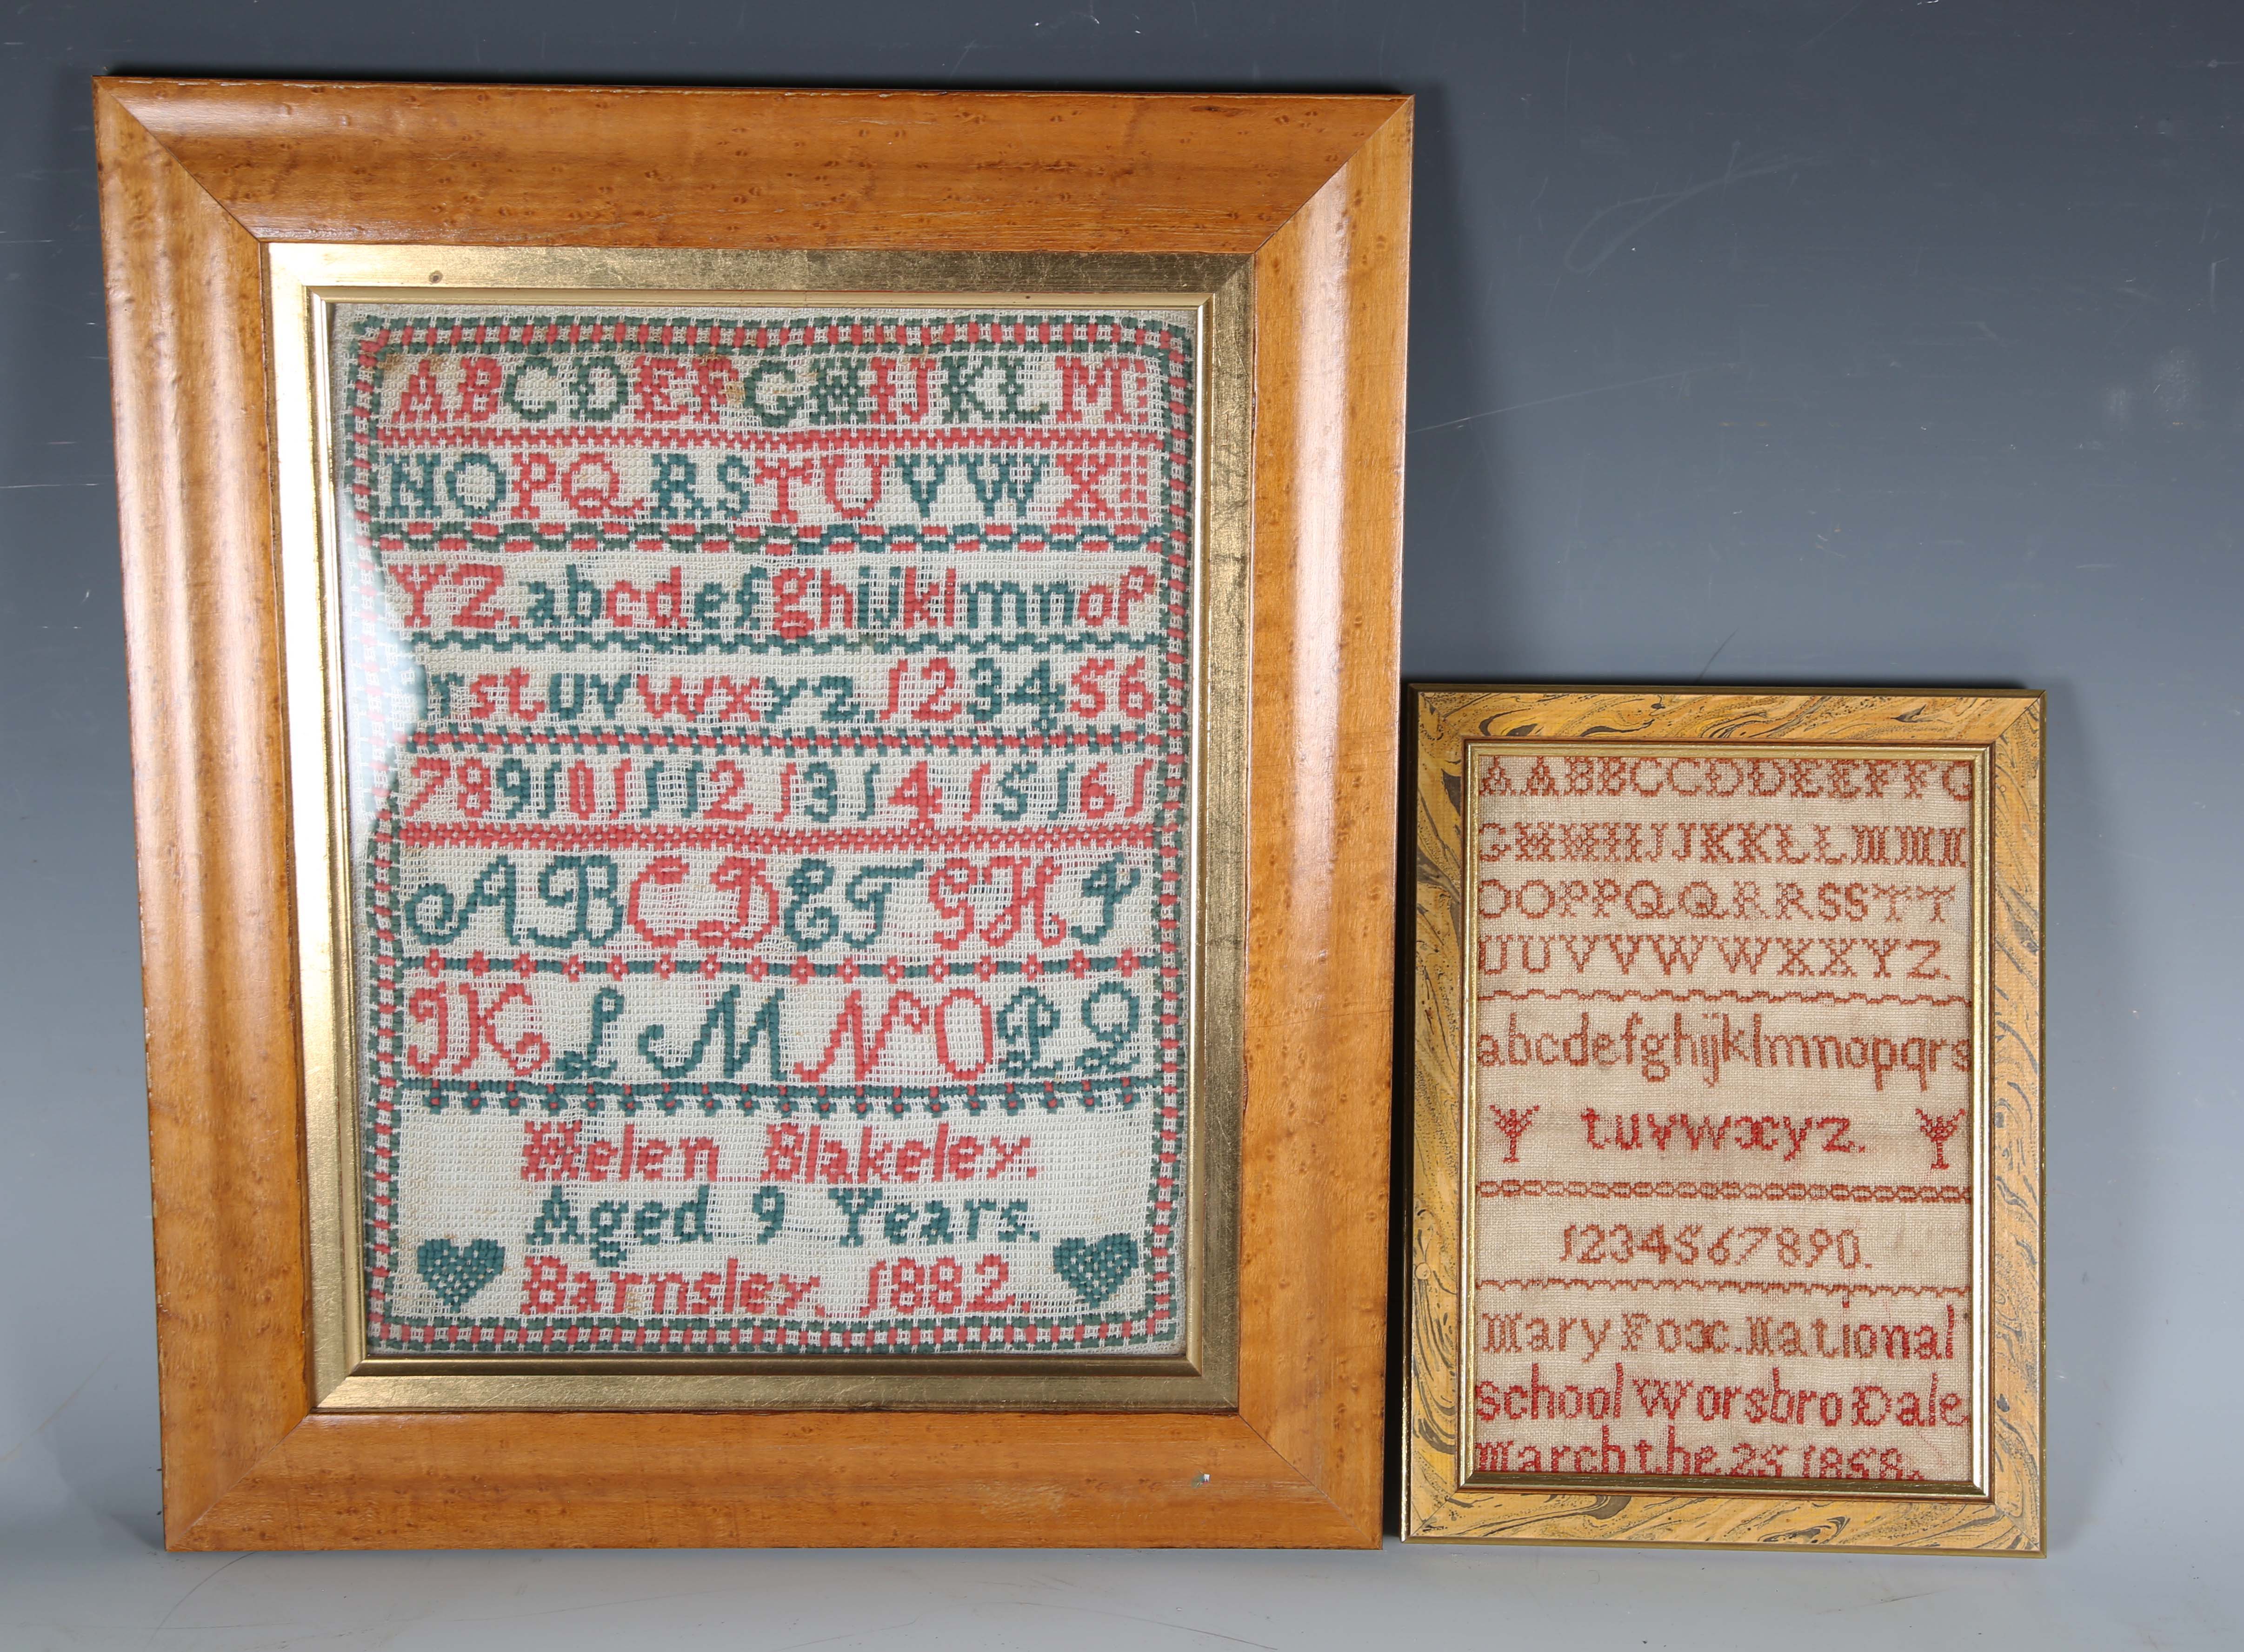 ABCDEFGHIJKLM
NOPQRSTUVWX
YZ.abcdefghijklmnop
rstuvwxyz.123456
789101112131415161
ABCDEFGHI
JKLMNOPQ
Helen Blakeley.
Aged 9 Years.
Barnsley. 1882.
AABBCCDDEEFFG
GHHIIJJKKLLMMN
OOPPQQRRSSTT
UUVVWWXXYZ.
abcdefghijklmnopqrs
tuvwxyz.
1234567890.
Mary Fox. National
School Worsbro Dale
March the 25 1858.